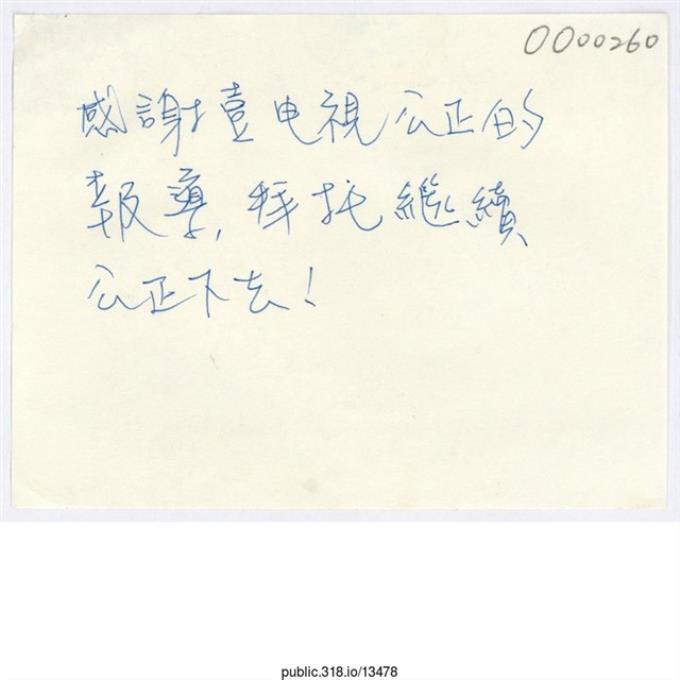 0000260
感謝壹电視公正的
報導,拜托繼續
公正下去!
public.318.io/13478